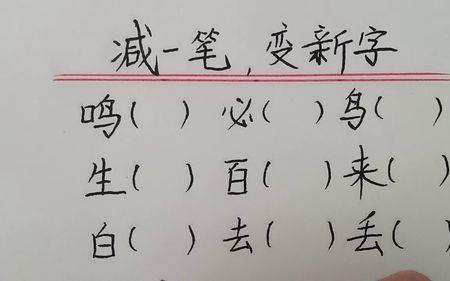 减一笔，变新字
鸣(  ) 必(  ) 鸟(  )
生(  ) 百(  ) 来(  )
白(  ) 去(  ) 丢(  )